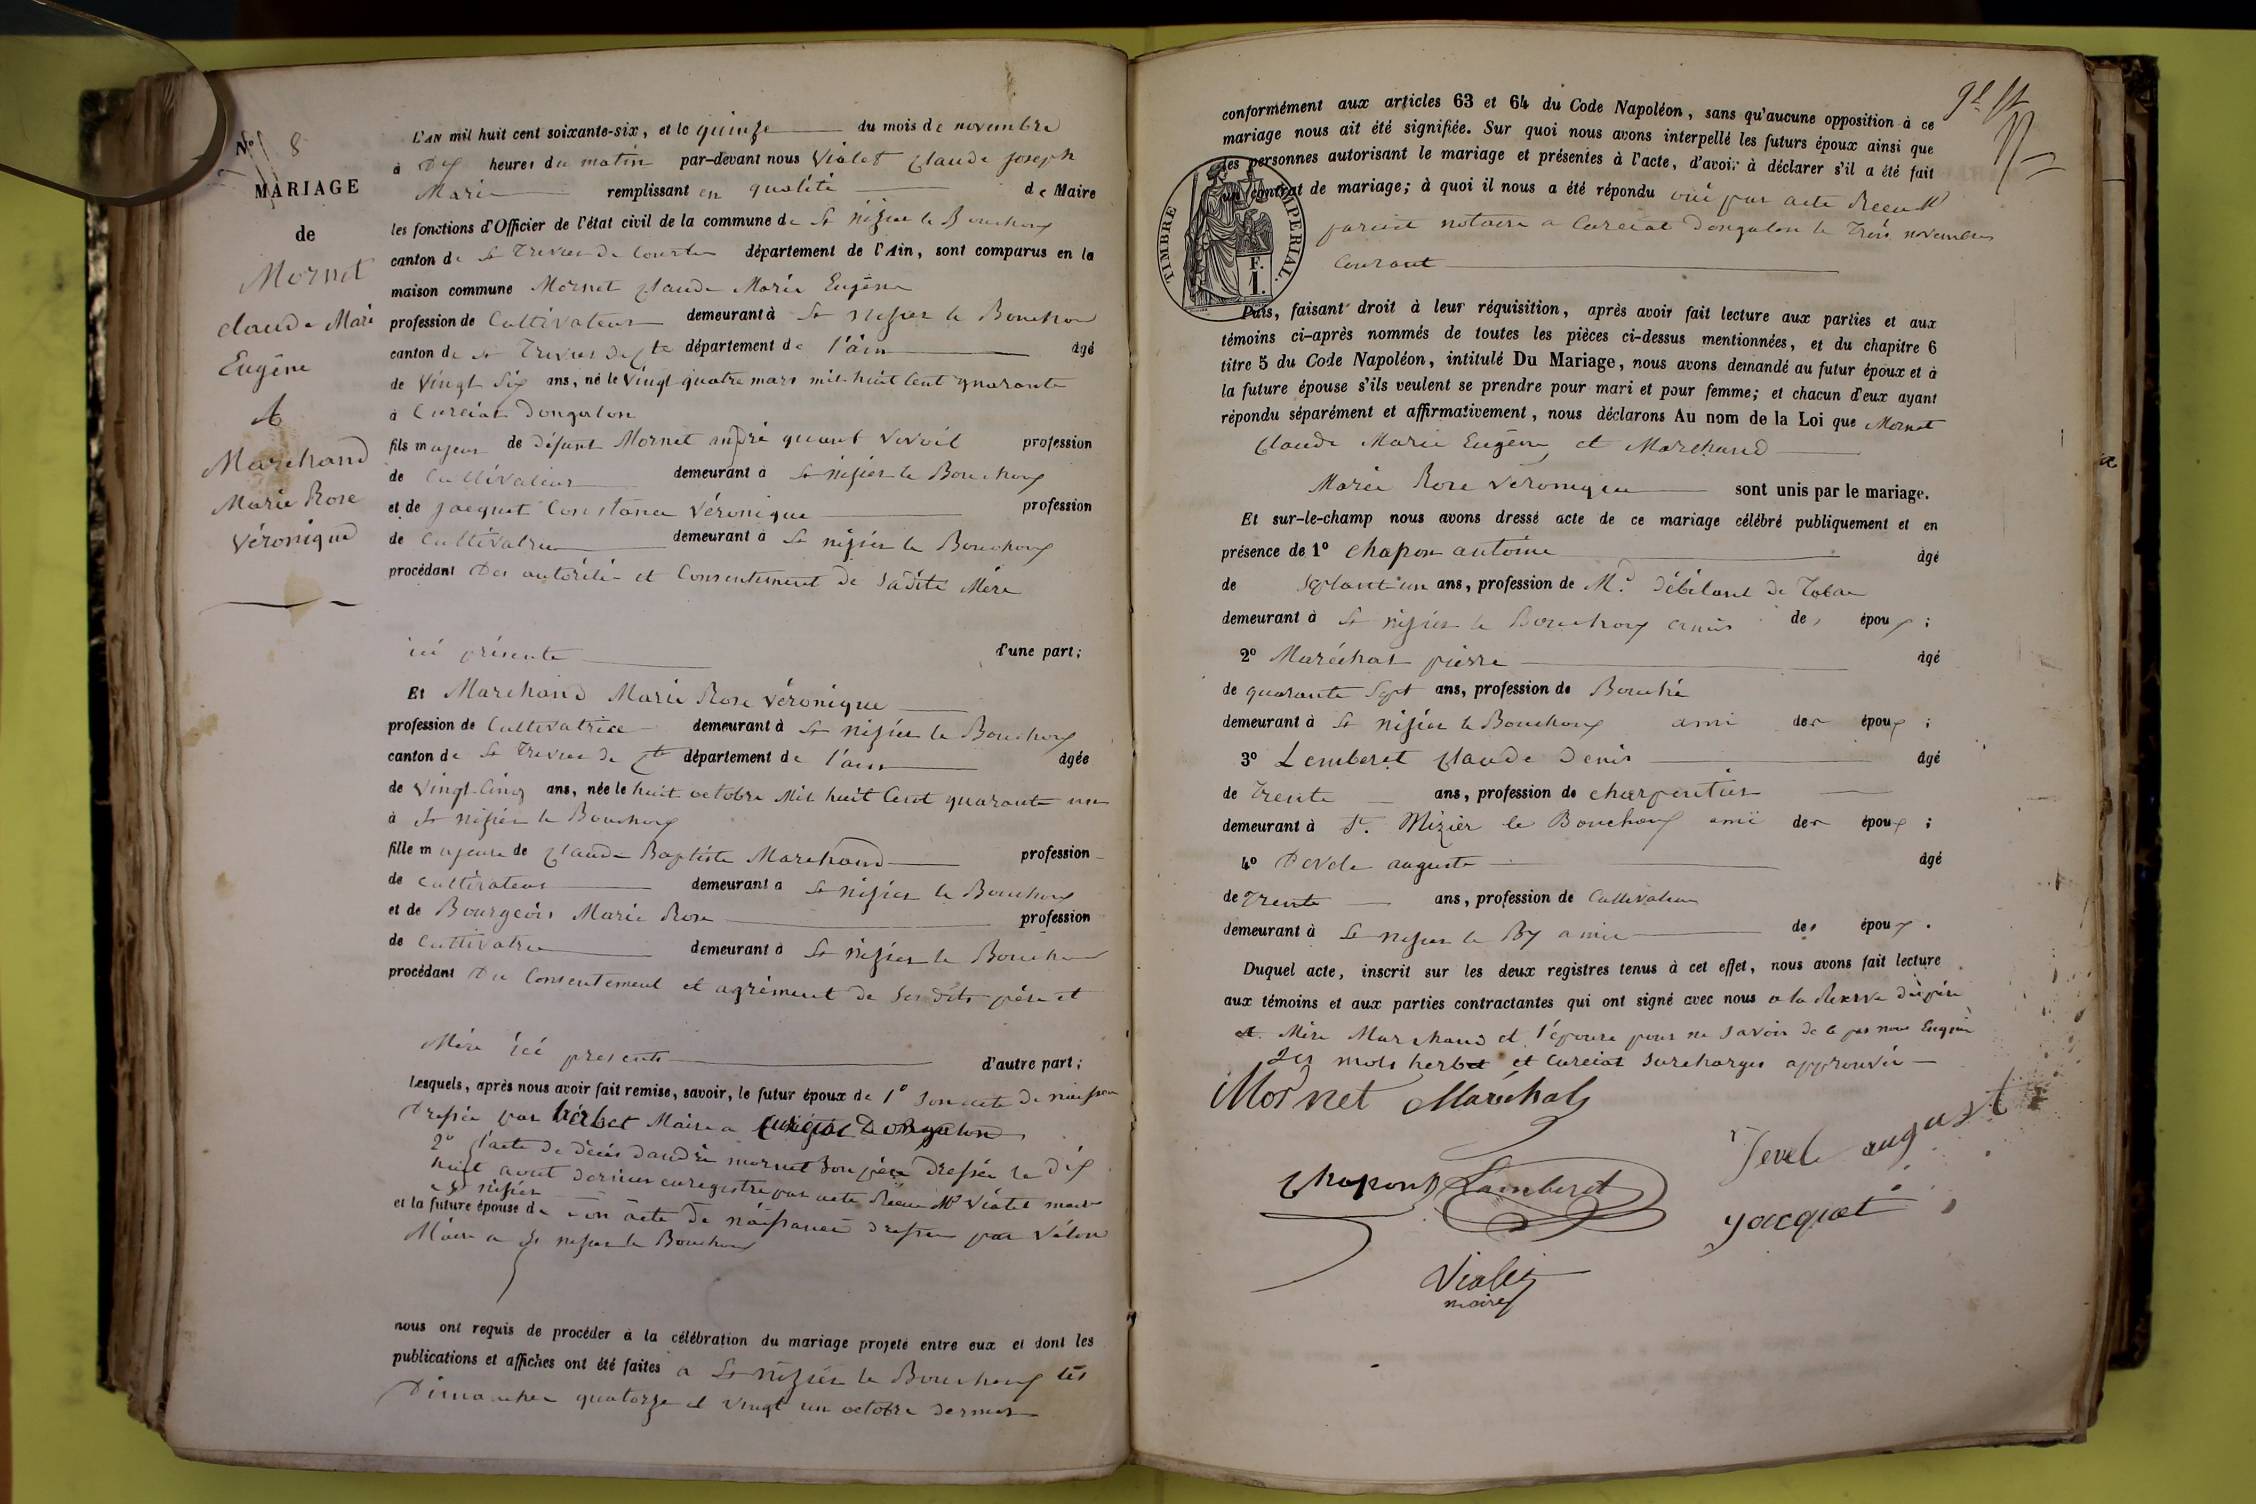 N° 8
MARIAGE
de
Mornet
claude Marie
Eugène
&
Marchand
Marie Rose
Véronique
L'AN mil huit cent soixante-six, et le quinze du mois de novembre
à Dix heures du matin par-devant nous Violet Claude Joseph
Marie remplissant en qualité de Maire
les fonctions d'Officier de l'état civil de la commune de St nizier le Bouchoux
canton de St Trivier de Courtes département de l'Ain, sont comparus en la
maison commune Mornet Claude Marie Eugène
profession de Cultivateur demeurant à St nizier le Bouchoux
canton de St Trivier de Cte département de l'ain âgé
de Vingt Six ans, né le Vingt quatre mars mil huit Cent quarante
à Curciat Dongalon
fils majeur de défunt Mornet andré quant vivoit profession
de Cultivateur demeurant à St nizier le Bouchoux
et de jacquet Constance Véronique profession
de Cultivatrice demeurant à St nizier le Bouchoux
procédant Des autorité et Consentement de Sadite Mère
ici présente d'une part;
Et Marchand Marie Rose Véronique
profession de Cultivatrice demeurant à St nizier le Bouchoux
canton de St Trivier de Cte département de l'ain âgée
de Vingt-Cinq ans, née le huit octobre Mil huit Cent quarante un
à St nizier le Bouchoux
fille majeure de Claude Baptiste Marchand profession
de Cultivateur demeurant à St nizier le Bouchoux
et de Bourgeois Marie Rose profession
de Cultivatrice demeurant à St nizier le Bouchoux
procédant Du Consentement et agrément de Ses dits père et
Mère ici présents d'autre part;
Lesquels, après nous avoir fait remise, savoir, le futur époux de 1° Son acte de naissance
Dressée par herbet Maire a Curciat Dongalon
2° l'acte de décès d'andré mornet Son père Dressée le dix
huit aout dernier enregistre par acte Recu Mr Violet maire
a St nizier
et la future épouse de Son acte de naissance dressée par
Maire a St nizier le Bouchoux
nous ont requis de procéder à la célébration du mariage projeté entre eux et dont les
publications et affiches ont été faites a St nizier le Bouchoux les
Dimanches quatorze et Vingt un octobre dernier
conformément aux articles 63 et 64 du Code Napoléon, sans qu'aucune opposition à ce
mariage nous ait été signifiée. Sur quoi nous avons interpellé les futurs époux ainsi que
les personnes autorisant le mariage et présentes à l'acte, d'avoir à déclarer s'il a été fait
un contrat de mariage; à quoi il nous a été répondu oui par acte Recu Mr
notaire a Curciat Dongalon le Trois novembre
Courant
TIMBRE IMPERIAL.
F.
1.
Puis, faisant droit à leur réquisition, après avoir fait lecture aux parties et aux
témoins ci-après nommés de toutes les pièces ci-dessus mentionnées, et du chapitre 6
titre 5 du Code Napoléon, intitulé Du Mariage, nous avons demandé au futur époux et à
la future épouse s'ils veulent se prendre pour mari et pour femme; et chacun d'eux ayant
répondu séparément et affirmativement, nous déclarons Au nom de la Loi que Mornet
Claude Marie Eugène et Marchand
Marie Rose Véronique sont unis par le mariage.
Et sur-le-champ nous avons dressé acte de ce mariage célébré publiquement et en
présence de 1° Chapon antoine âgé
de Septante un ans, profession de Md débitant de Tabac
demeurant à St nizier le Bouchoux amis des époux;
2° Maréchal pierre âgé
de quarante Sept ans, profession de Bouché
demeurant à St nizier le Bouchoux ami des époux;
3° Lemberet Claude Denis âgé
de Trente ans, profession de charpentier
demeurant à St. Nizier le Bouchoux ami des époux;
4° auguste âgé
de Trente ans, profession de Cultivateur
demeurant à St nizier le Bx amie des époux.
Duquel acte, inscrit sur les deux registres tenus à cet effet, nous avons fait lecture
aux témoins et aux parties contractantes qui ont signé avec nous a la Reserve des père
et Mère Marchand et l'épouse pour ne Savoir de ce par nous Enquis
Les mots herbet et Curciat Surchargés approuvés
Mornet Maréchal
Jevel august
Chapon Lamberet
jacquet
Violet
maire